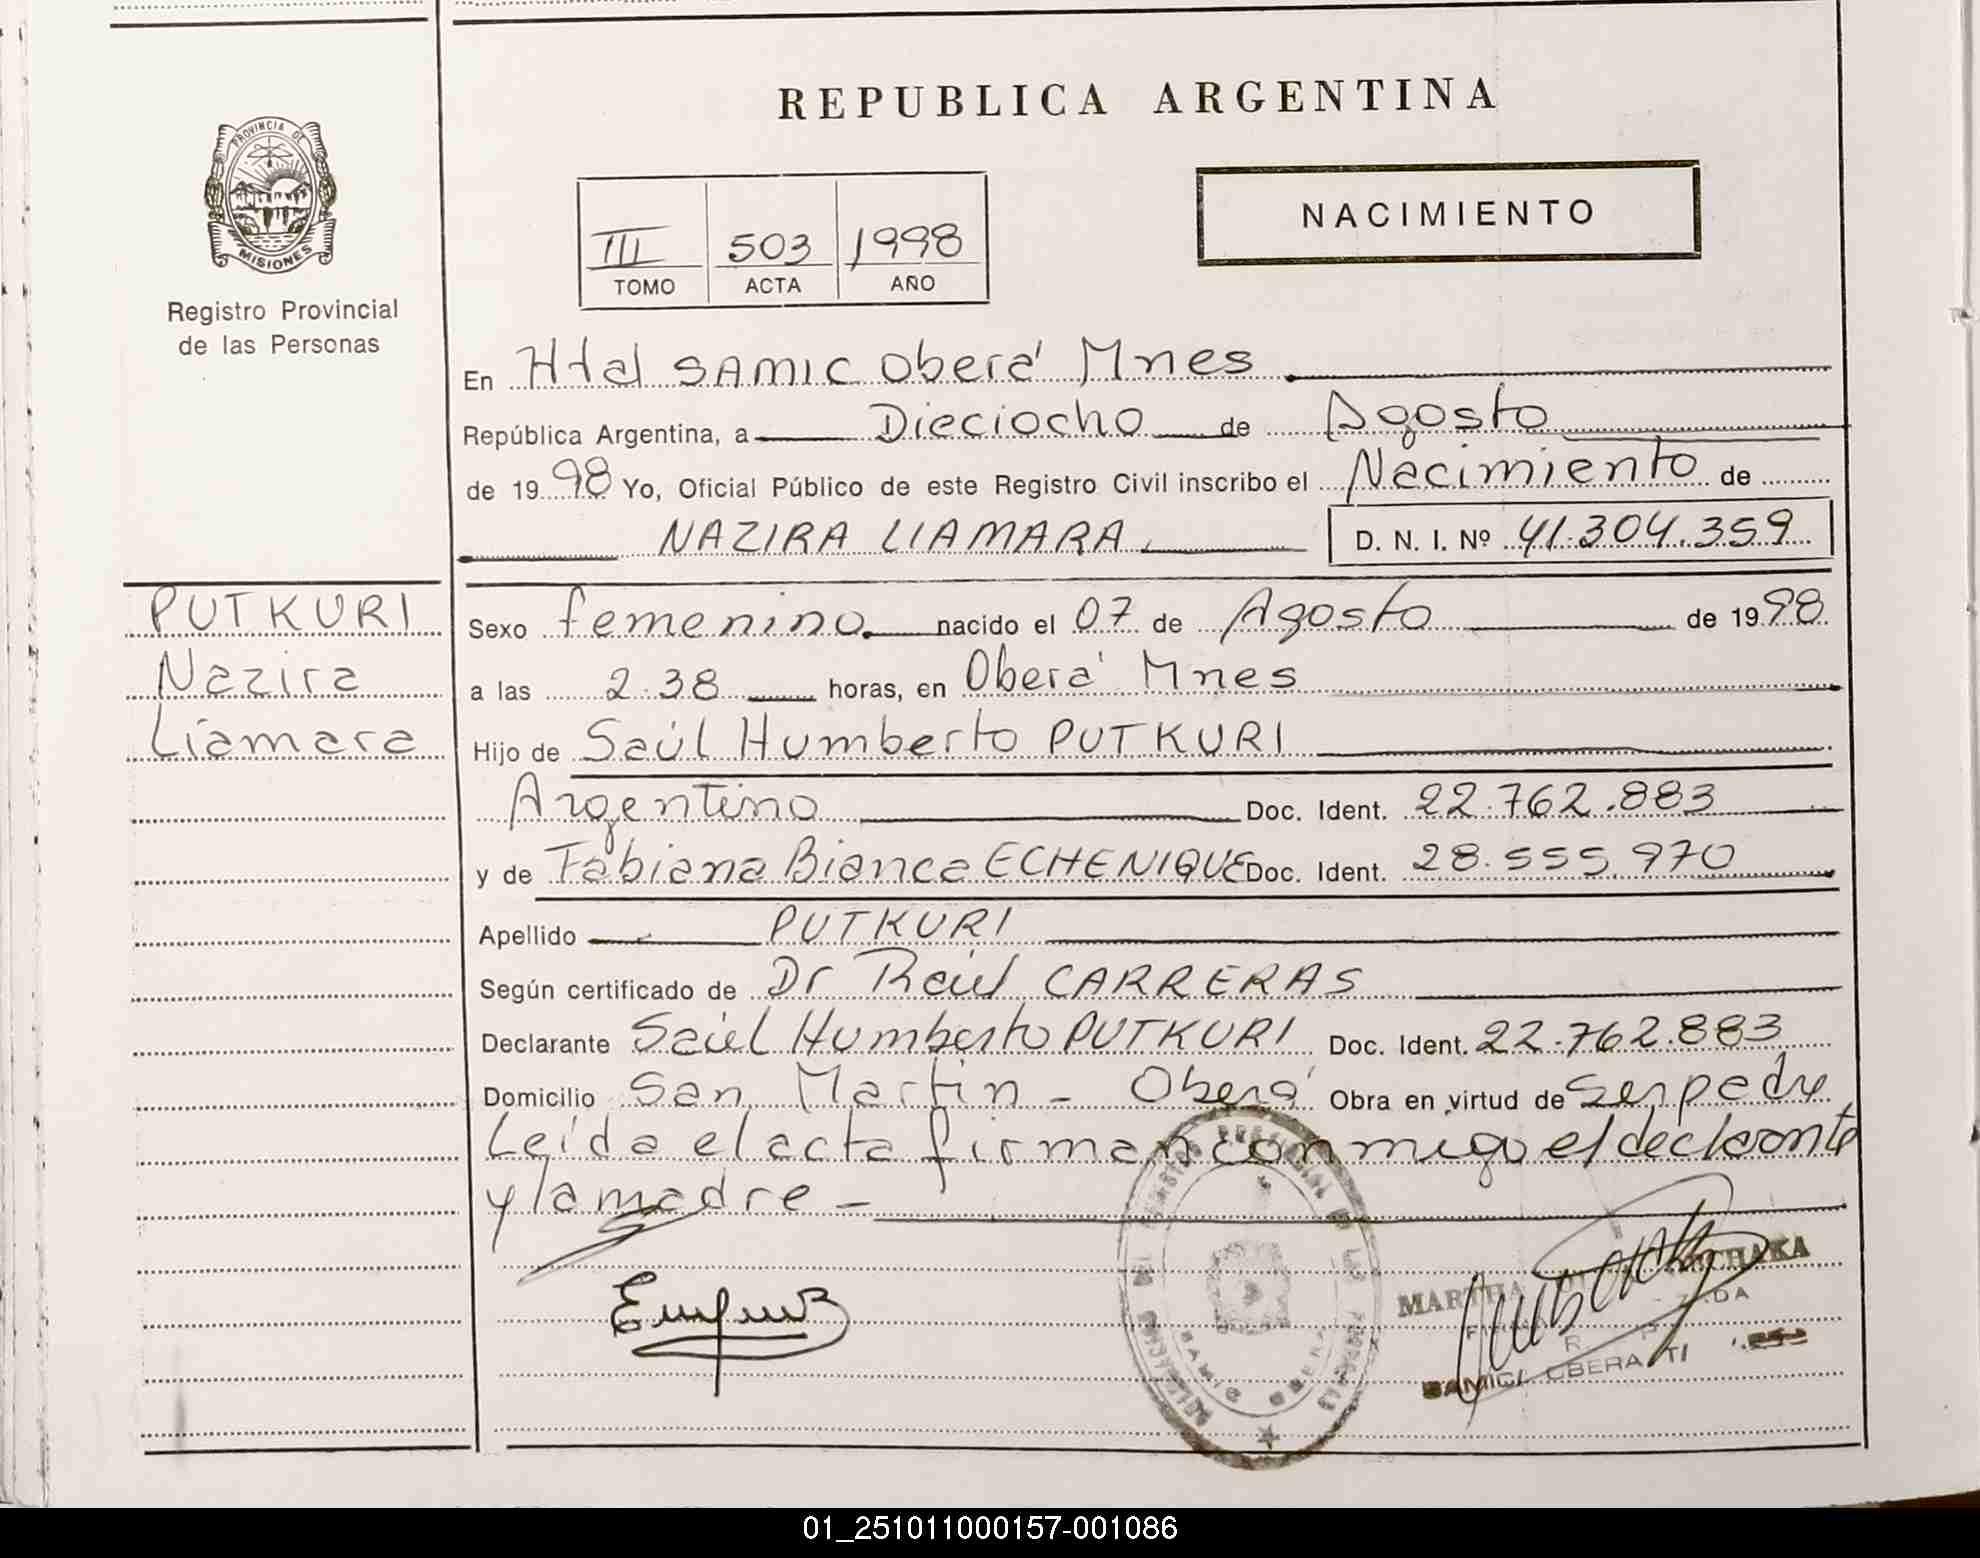 REPUBLICA ARGENTINA
PROVINCIA DE
MISIONES
Registro Provincial
de las Personas
III 503 1998
TOMO ACTA AÑO
NACIMIENTO
En Htal SAMIC Oberá Mnes
República Argentina, a Dieciocho de Agosto
de 1998 Yo, Oficial Público de este Registro Civil inscribo el Nacimiento de
NAZIRA LIAMARA D. N. I. Nº 41.304.359
PUTKURI
Nazira
Liamara
Sexo femenino nacido el 07 de Agosto de 1998
a las 2.38 horas, en Oberá Mnes
Hijo de Saúl Humberto PUTKURI
Argentino Doc. Ident. 22.762.883
y de Fabiana Bianca ECHENIQUE Doc. Ident. 28.555.970
Apellido PUTKURI
Según certificado de Dr Raúl CARRERAS
Declarante Saúl Humberto PUTKURI Doc. Ident. 22.762.883
Domicilio San Martin - Oberá Obra en virtud de ser padre
Leída el acta firman conmigo el declarante
y la madre -
MARTHA
01_251011000157-001086